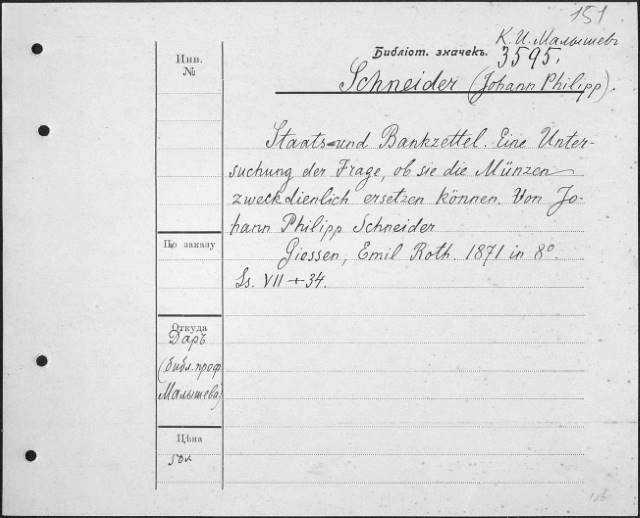 151
К. И. Малышевъ
Библіот. значекъ. 3595.
Schneider (Johann Philipp).
Инв.
№
Staats- und Bankzettel. Eine Unter-
suchung der Frage, ob sie die Münzen
zweckdienlich ersetzen können. Von Jo-
hann Philipp Schneider
Giessen, Emil Roth. 1871 in 8º.
Ss. VII + 34.
По заказу
Откуда
Даръ
(библ. проф.
Малышева)
Цѣна
50к